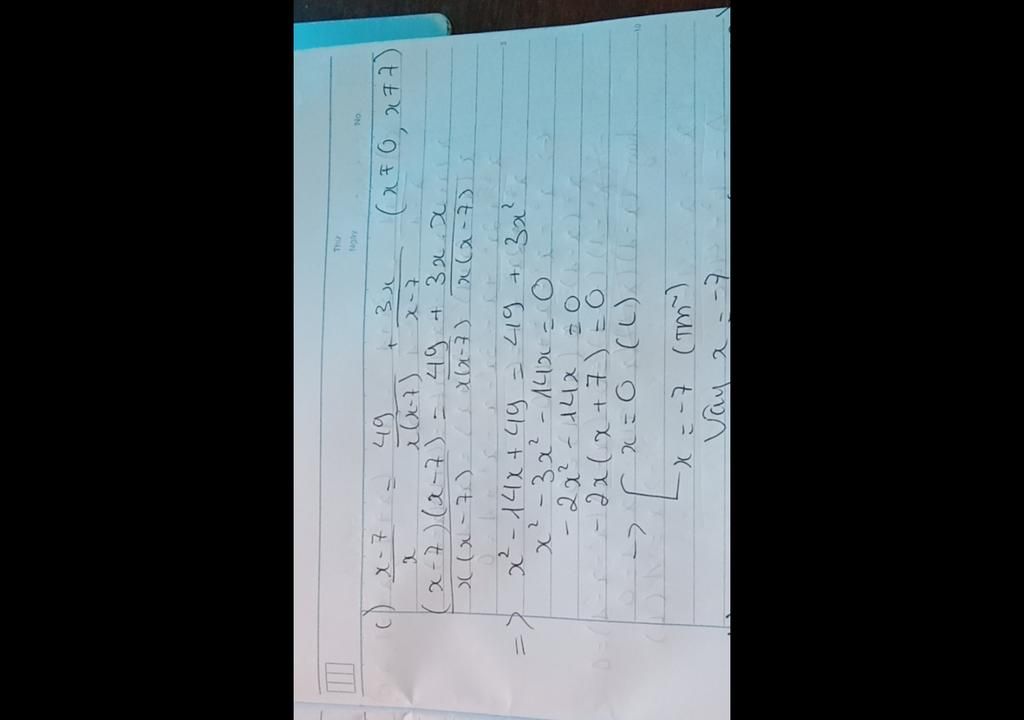 Thứ
Ngày
No.
c) x-7/x = 49/x(x-7) + 3x/x-7 (x≠0, x≠7)
(x-7)(x-7)/x(x-7) = 49/x(x-7) + 3x.x/x(x-7)
=> x² - 14x + 49 = 49 + 3x²
x² - 3x² - 14x = 0
- 2x² - 14x = 0
- 2x(x + 7) = 0
-> [ x = 0 (L)
x = -7 (TM)
Vậy x = -7
5
10